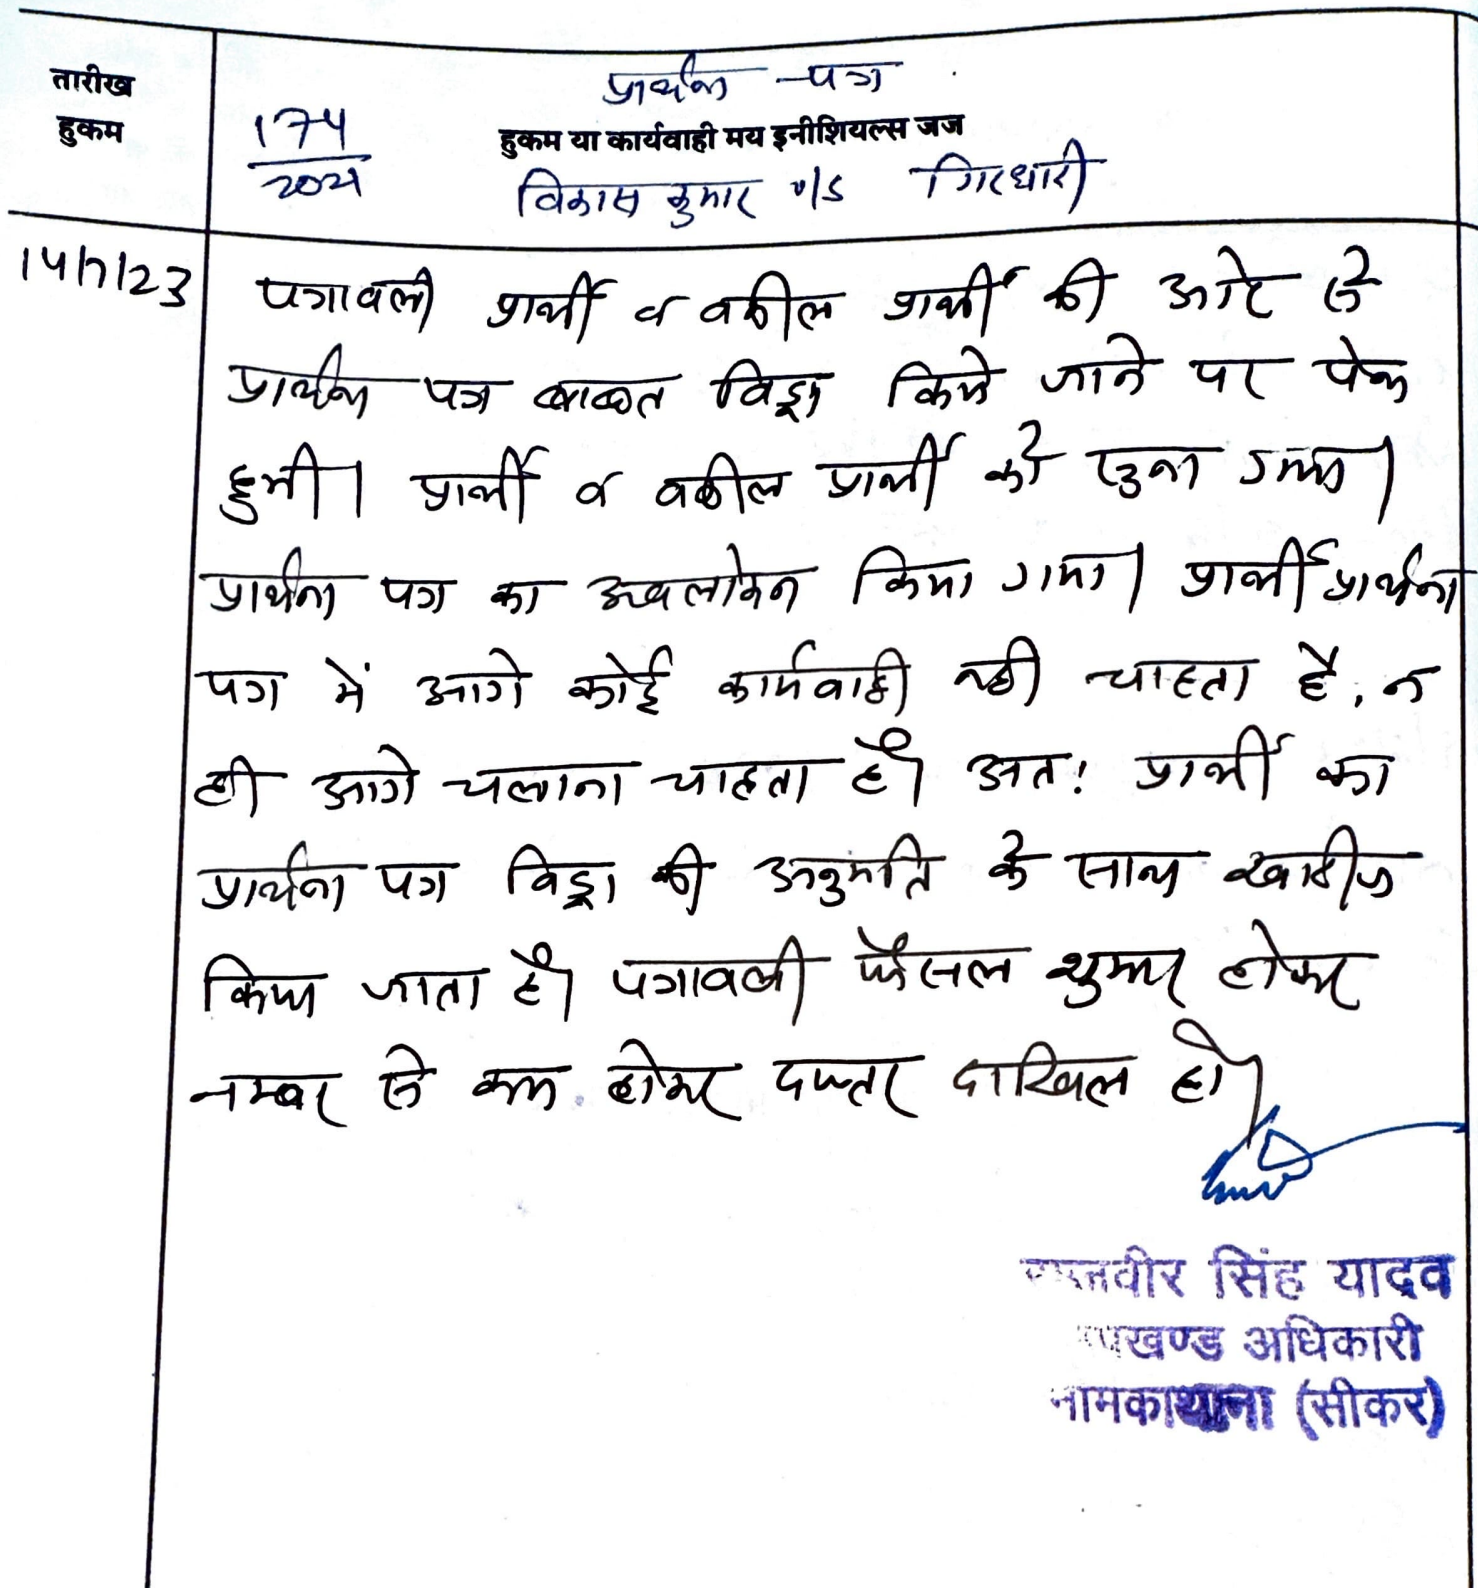 तारीख
हुकम
प्रार्थना - पत्र
174
2021
हुकम या कार्यवाही मय इनीशियल्स जज
विकास कुमार v/s गिरधारी
14/7/23
पत्रावली प्रार्थी व वकील प्रार्थी की ओर से
प्रार्थना पत्र बाबत विड्रा किये जाने पर पेश
हुयी। प्रार्थी व वकील प्रार्थी को सुना गया।
प्रार्थना पत्र का अवलोकन किया गया। प्रार्थी प्रार्थना
पत्र में आगे कोई कार्यवाही नही चाहता है, न
ही आगे चलाना चाहता है। अत: प्रार्थी का
प्रार्थना पत्र विड्रा की अनुमति के साथ खारीज
किया जाता है। पत्रावली फैसल शुमार होकर
नम्बर से कम होकर दफ्तर दाखिल हो।
सिंह यादव
खण्ड अधिकारी
(सीकर)